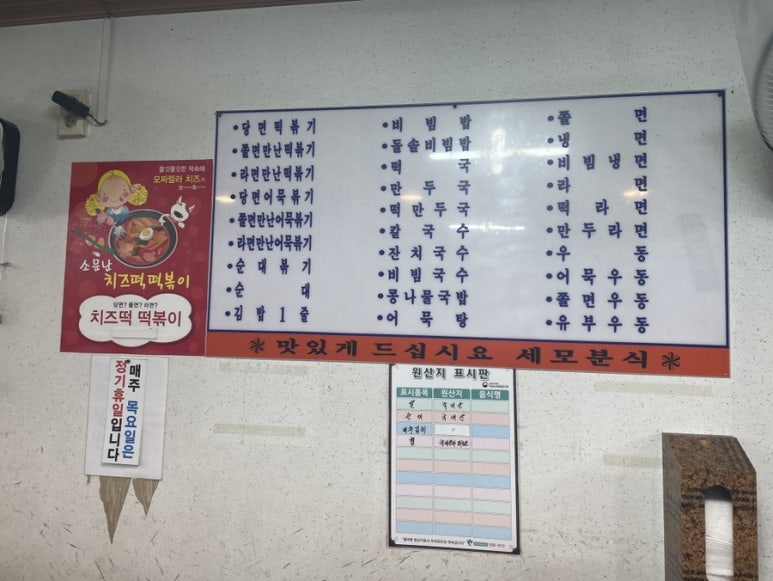 쫄깃쫄깃한 떡속에
모짜렐라 치즈가
쏘~~옥~
소문난
치즈떡떡볶이
당면? 쫄면? 라면?
치즈떡 떡볶이
매주 목요일은
정기휴일입니다
•당면떡볶기
•쫄면만난떡볶기
•라면만난떡볶기
•당면어묵볶기
•쫄면만난어묵볶기
•라면만난어묵볶기
•순대볶기
•순대
•김밥1줄
•비빔밥
•돌솥비빔밥
•떡국
•만두국
•떡만두국
•칼국수
•잔치국수
•비빔국수
•콩나물국밥
•어묵탕
•쫄면
•냉면
•비빔냉면
•라면
•떡라면
•만두라면
•우동
•어묵우동
•쫄면우동
•유부우동
맛있게 드십시요 세모분식
원산지 표시판
표시품목 원산지 음식명
쌀 국내산
국내산
배추김치